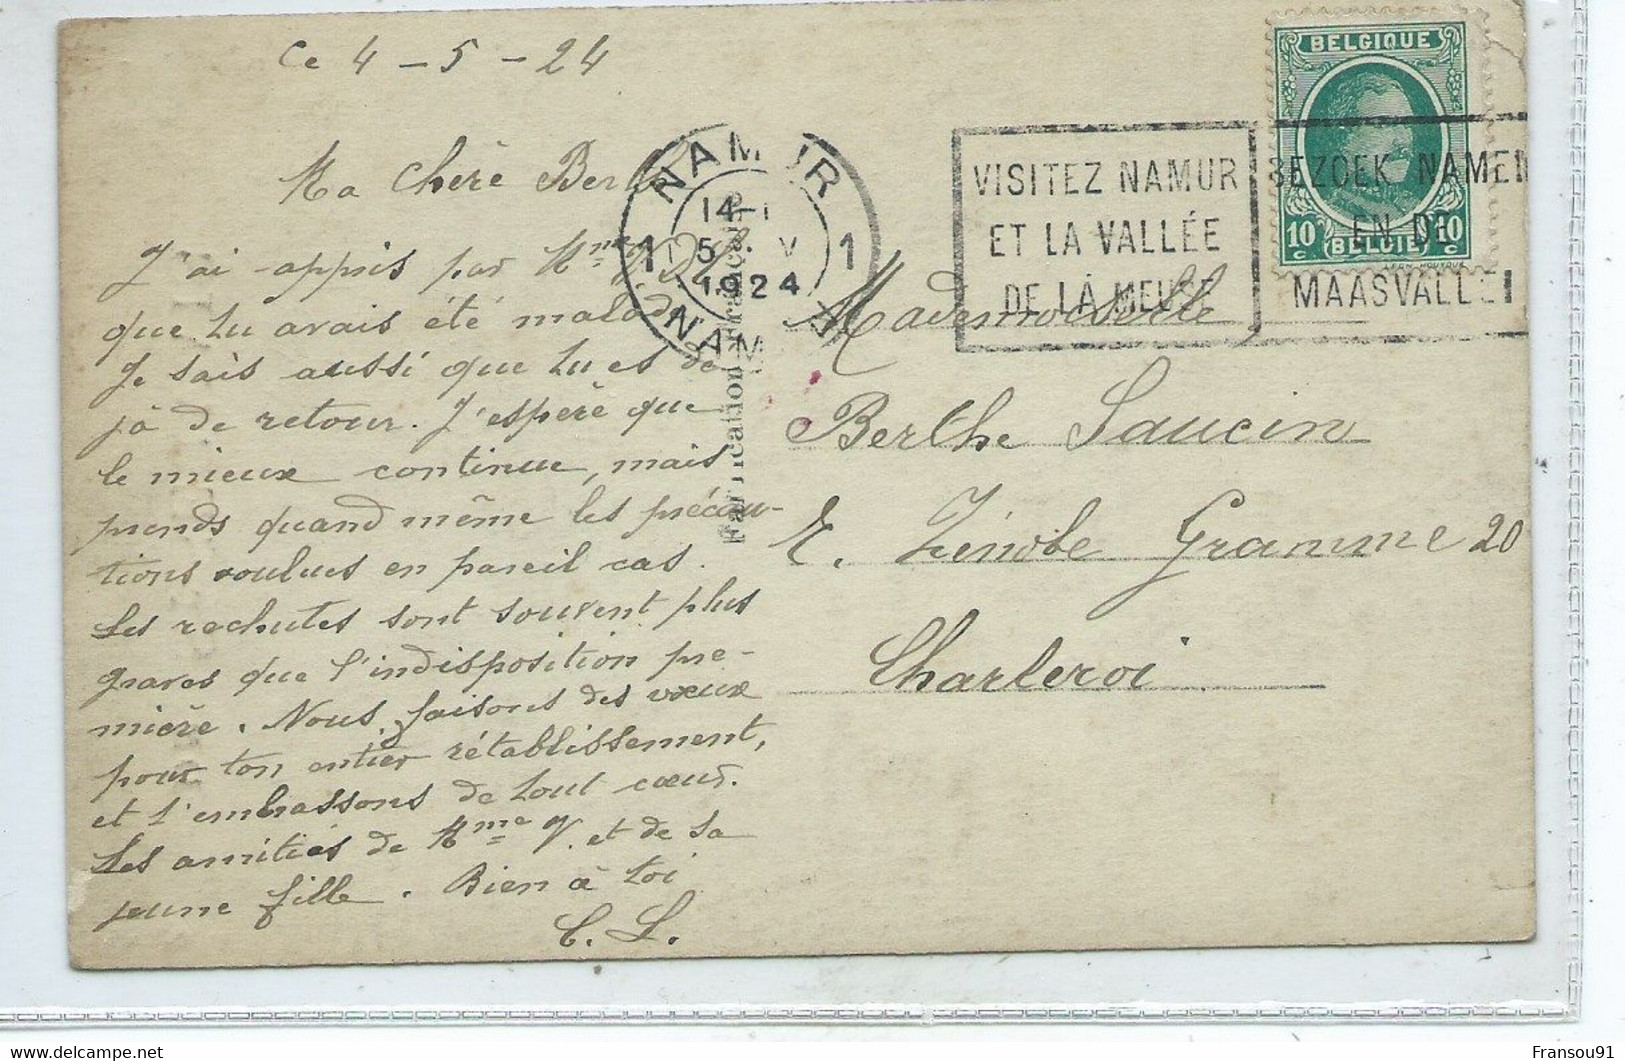 Ce 4 - 5 - 24
Ma Chère Berthe
J'ai appris par Mme
que tu avais été malade
Je sais aussi que tu es dé
jà de retour. J'espère que
le mieux continue, mais
prends quand même les précau-
tions voulues en pareil cas.
Les rechutes sont souvent plus
graves que l'indisposition pre-
mière. Nous faisons des vœux
pour ton entier rétablissement,
et t'embrassons de tout cœur.
Les amitiés de Mme V. et de sa
jeune fille. Bien à toi
C. L.
Fabrication Française
NAMUR
1 1
14-
5 V
1924
NAM
VISITEZ NAMUR
ET LA VALLÉE
DE LA MEUSE
BEZOEK NAMEN
EN DE
MAASVALLEI
BELGIQUE
10 c 10 c
BELGIE
Mademoiselle
Berthe Saucin
r. Zénobe Gramme 20
Charleroi
Fransou91